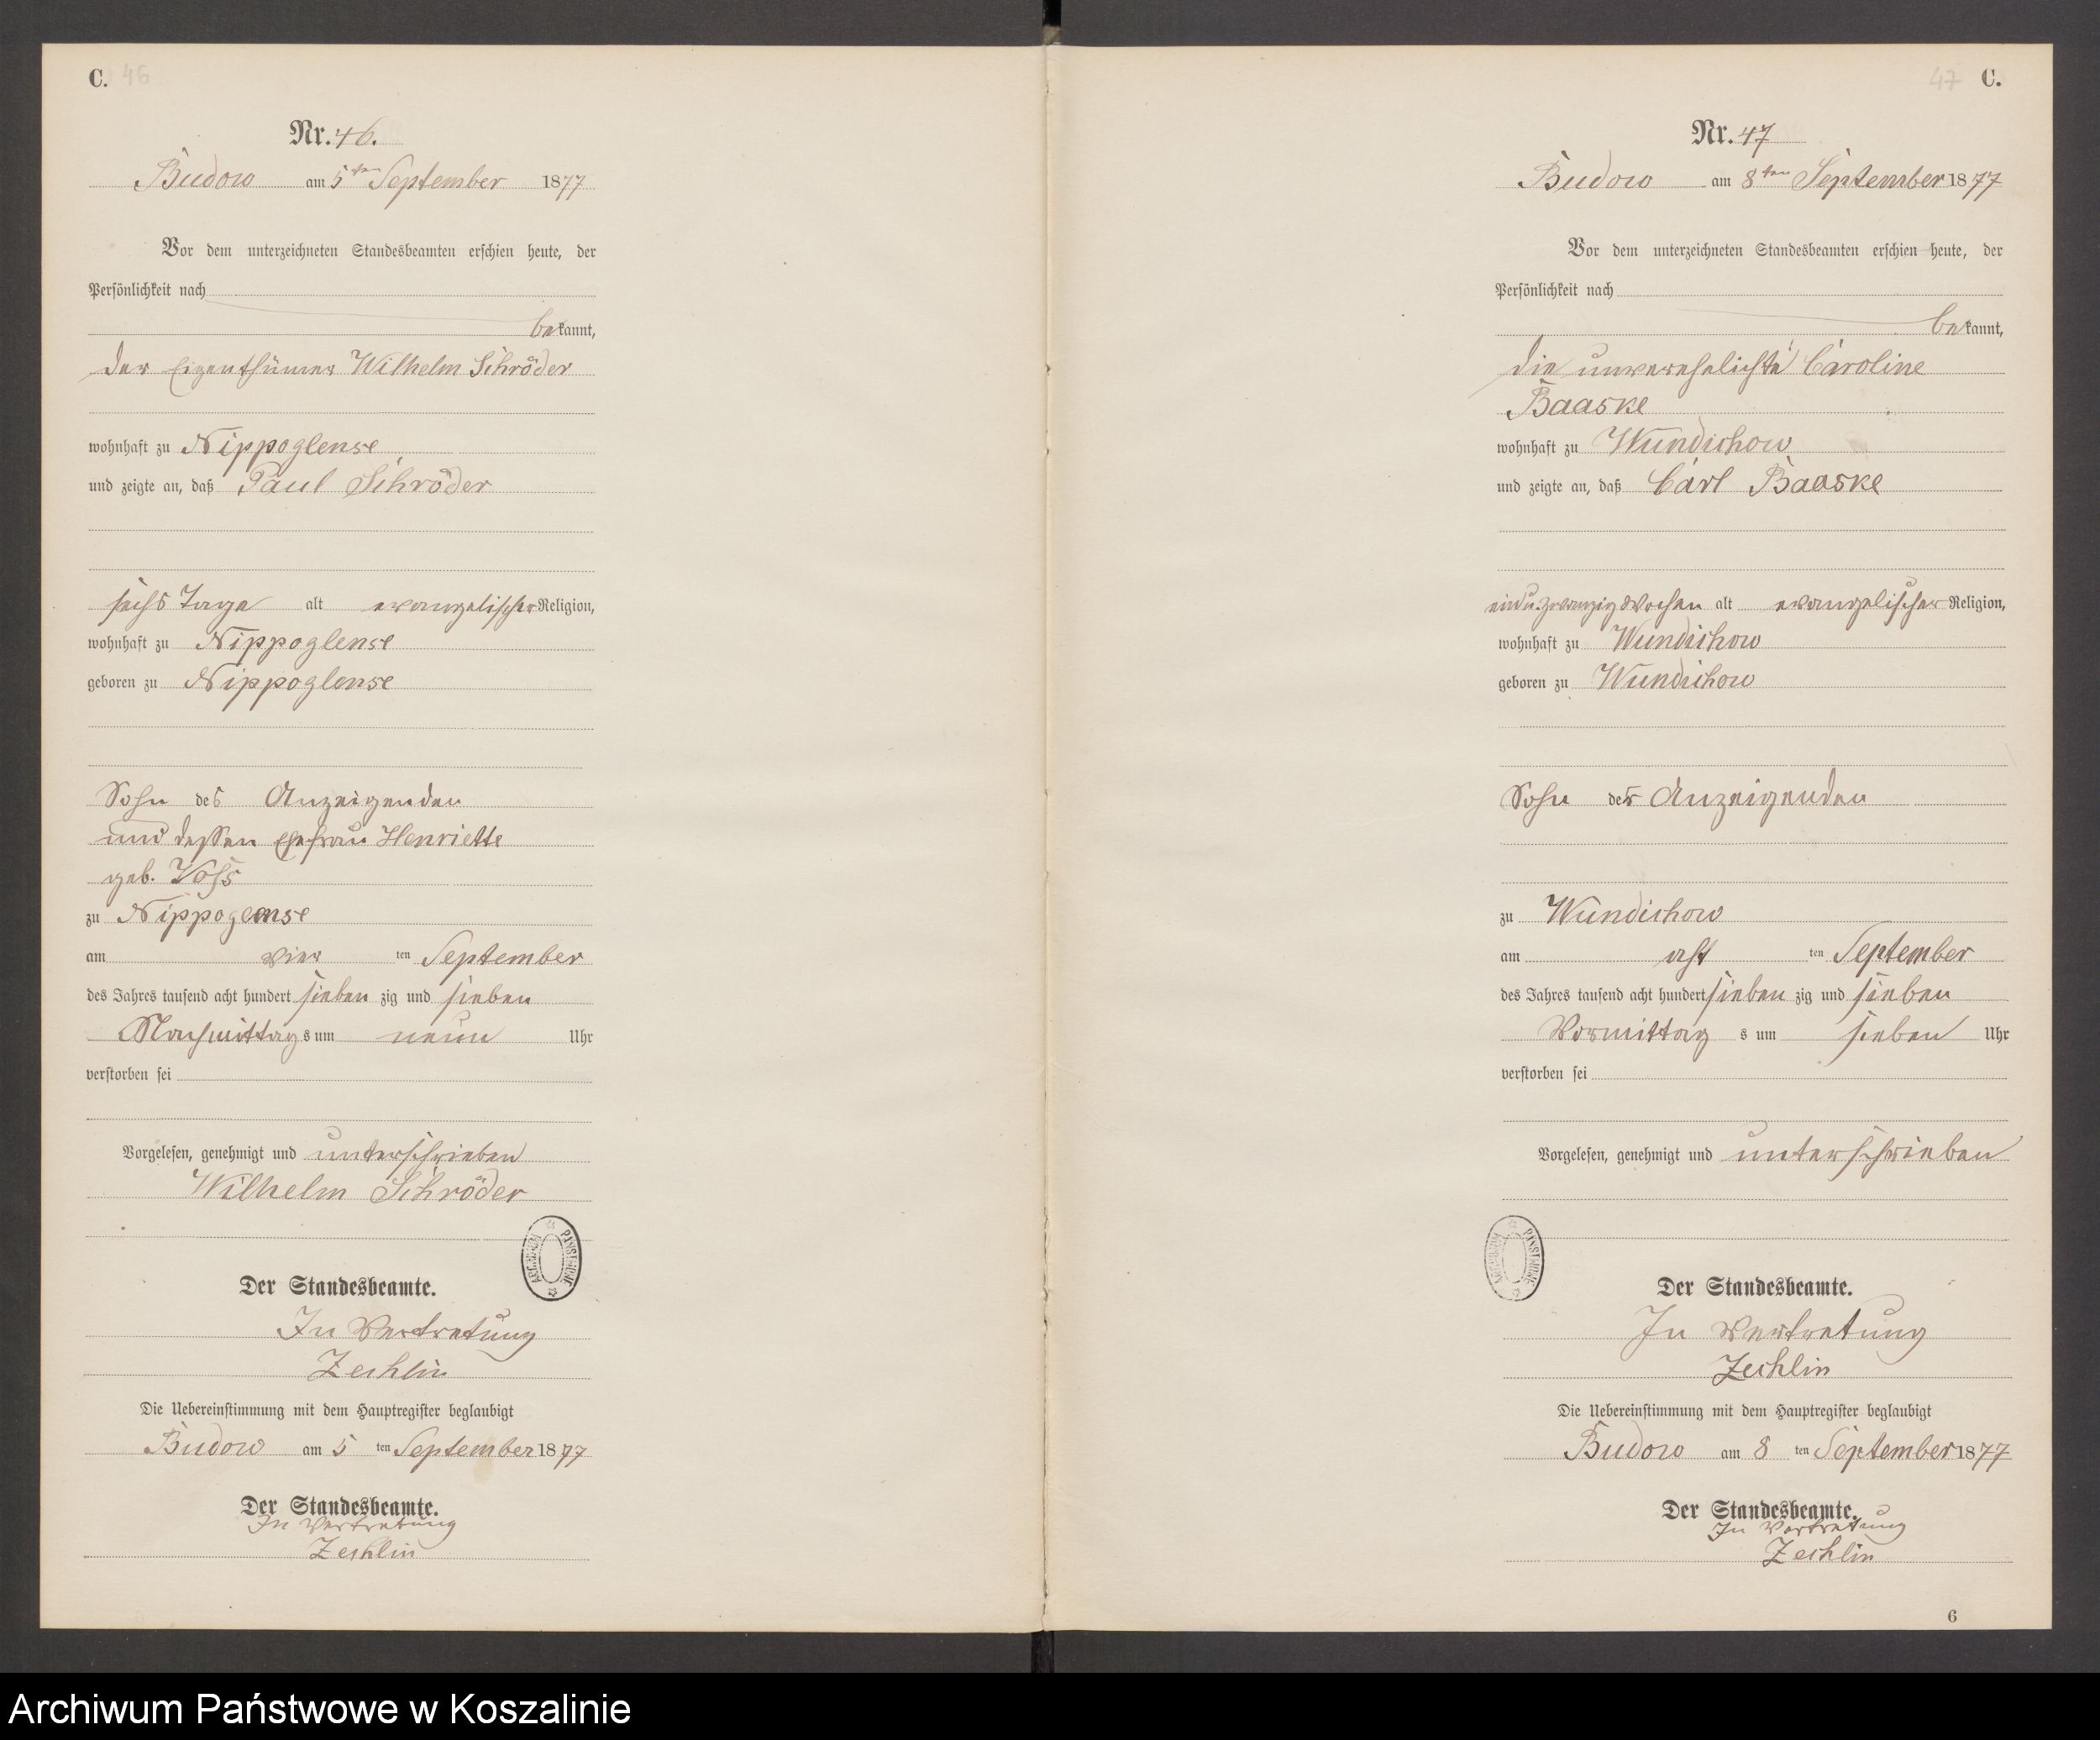 C. 46
Nr. 46.
Budow am 5ten September 1877
Vor dem unterzeichneten Standesbeamten erschien heute, der
Persönlichkeit nach
bekannt,
der Eigenthümer Wilhelm Schröder
wohnhaft zu Nippoglense
und zeigte an, daß Paul Schröder
sechs Tage alt evangelischer Religion,
wohnhaft zu Nippoglense
geboren zu Nippoglense
Sohn des Anzeigenden
und dessen Ehefrau Henriette
geb. Voss
zu Nippoglense
am vier ten September
des Jahres tausend acht hundert sieben zig und sieben
Nachmittags um neun Uhr
verstorben sei
Vorgelesen, genehmigt und unterschrieben
Wilhelm Schröder
ARCHIWUM PAŃSTWOWE
Der Standesbeamte.
In Vertretung
Zechlin
Die Uebereinstimmung mit dem Hauptregister beglaubigt
Budow am 5 ten September 1877
Der Standesbeamte.
In Vertretung
Zechlin
47 C.
Nr. 47
Budow am 8ten September 1877
Vor dem unterzeichneten Standesbeamten erschien heute, der
Persönlichkeit nach
bekannt,
die unverehelichte Caroline
Baaske
wohnhaft zu Wundichow
und zeigte an, daß Carl Baaske
einu.zwanzig Wochen alt evangelischer Religion,
wohnhaft zu Wundichow
geboren zu Wundichow
Sohn der Anzeigenden
zu Wundichow
am acht ten September
des Jahres tausend acht hundert sieben zig und sieben
Vormittag s um sieben Uhr
verstorben sei
Vorgelesen, genehmigt und unterschrieben
ARCHIWUM PAŃSTWOWE
Der Standesbeamte.
In Vertretung
Zechlin
Die Uebereinstimmung mit dem Hauptregister beglaubigt
Budow am 8 ten September 1877
Der Standesbeamte.
In Vertretung
Zechlin
6
Archiwum Państwowe w Koszalinie